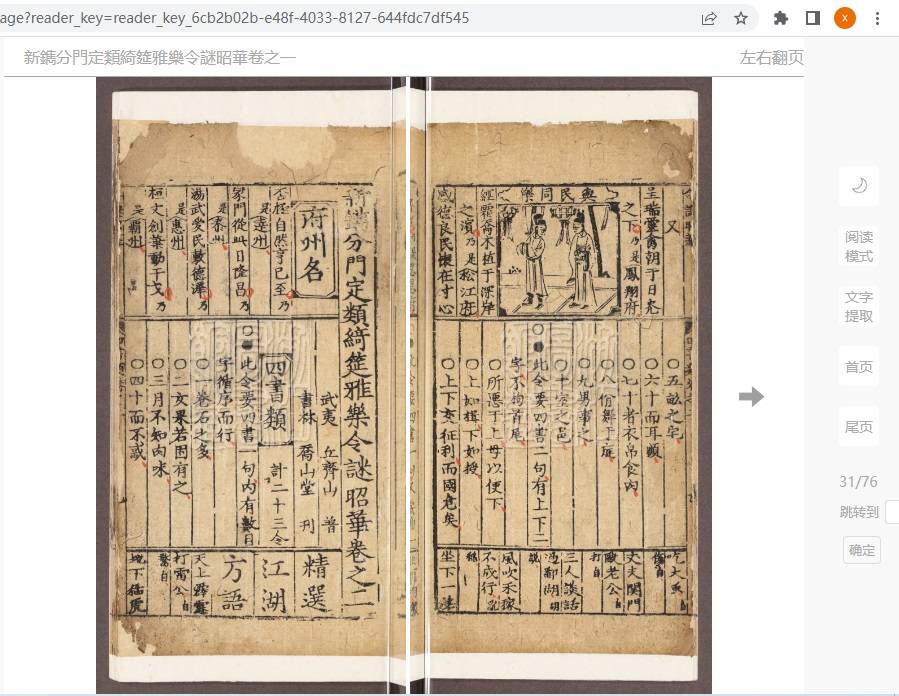 age?reader_key=reader_key_6cb2b02b-e48f-4033-8127-644fdc7df545
x
新鐫分門定類綺筵雅樂令謎昭華卷之一
左右翻页
新鐫分門定類綺筵雅樂令謎昭華卷之二
府州名
否極自然亨已至乃
是達州
家門從此日隆昌乃
是泰州
湯武愛民敷德澤乃
是惠州
桓文創業動干戈乃
是霸州
武夷 丘齊山 普
書林 喬山堂 刊
四書類 計二十三令
○此令要四書一句內有數目
字循序而行
○一卷石之多
○二女果若固有之
○三月不知肉味
○四十而不惑
精選
江湖
方語
天上霹靂
打雷公
地下猛虎
又
呈瑞靈禽朝于日兖
之下乃是鳳翔府
與民同樂
之濱乃是松江府
感德良民懷在寸心
○五畝之宅
○六十而耳順
○七十者衣帛食肉
○八佾舞于庭
○九男事之
○十室之邑
○此令要四書二句有上下二
字不拘首尾
○所惡于上毋以使下
○上如揖下如授
○上下交征利而國危矣
吃大魚
丈夫関門
毆老公
三人談話
風吹禾稼
不成行
坐下一
阅读
模式
文字
提取
首页
尾页
31/76
跳转到
确定